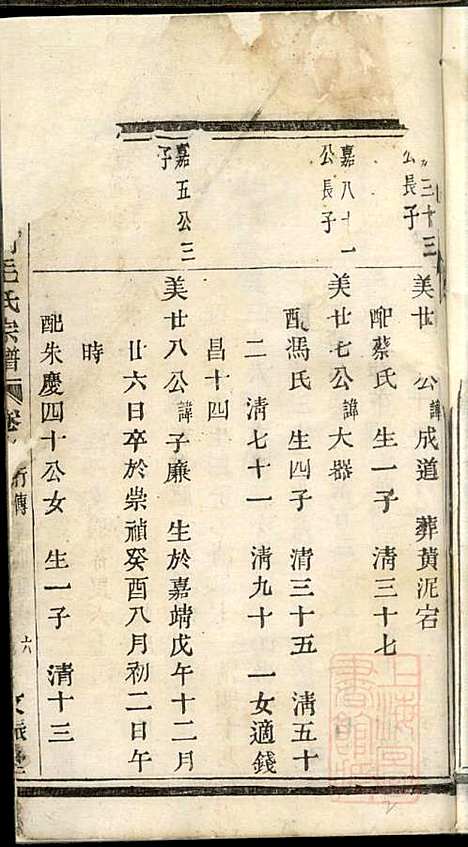 三十三
公長子
美廿 公諱成道 葬黃泥宕
配蔡氏 生一子 清三十七
嘉八十一
公長子
美廿七公諱大器
配馮氏 生四子 清三十五 清五十
二 清七十一 清九十 一女適錢
昌十四
嘉五公三
子
美廿八公諱子廉 生於嘉靖戊午十二月
廿六日卒於崇禎癸酉八月初二日午
時
配朱慶四十公女 生一子 清十三
毛氏宗譜 卷 行傳 六